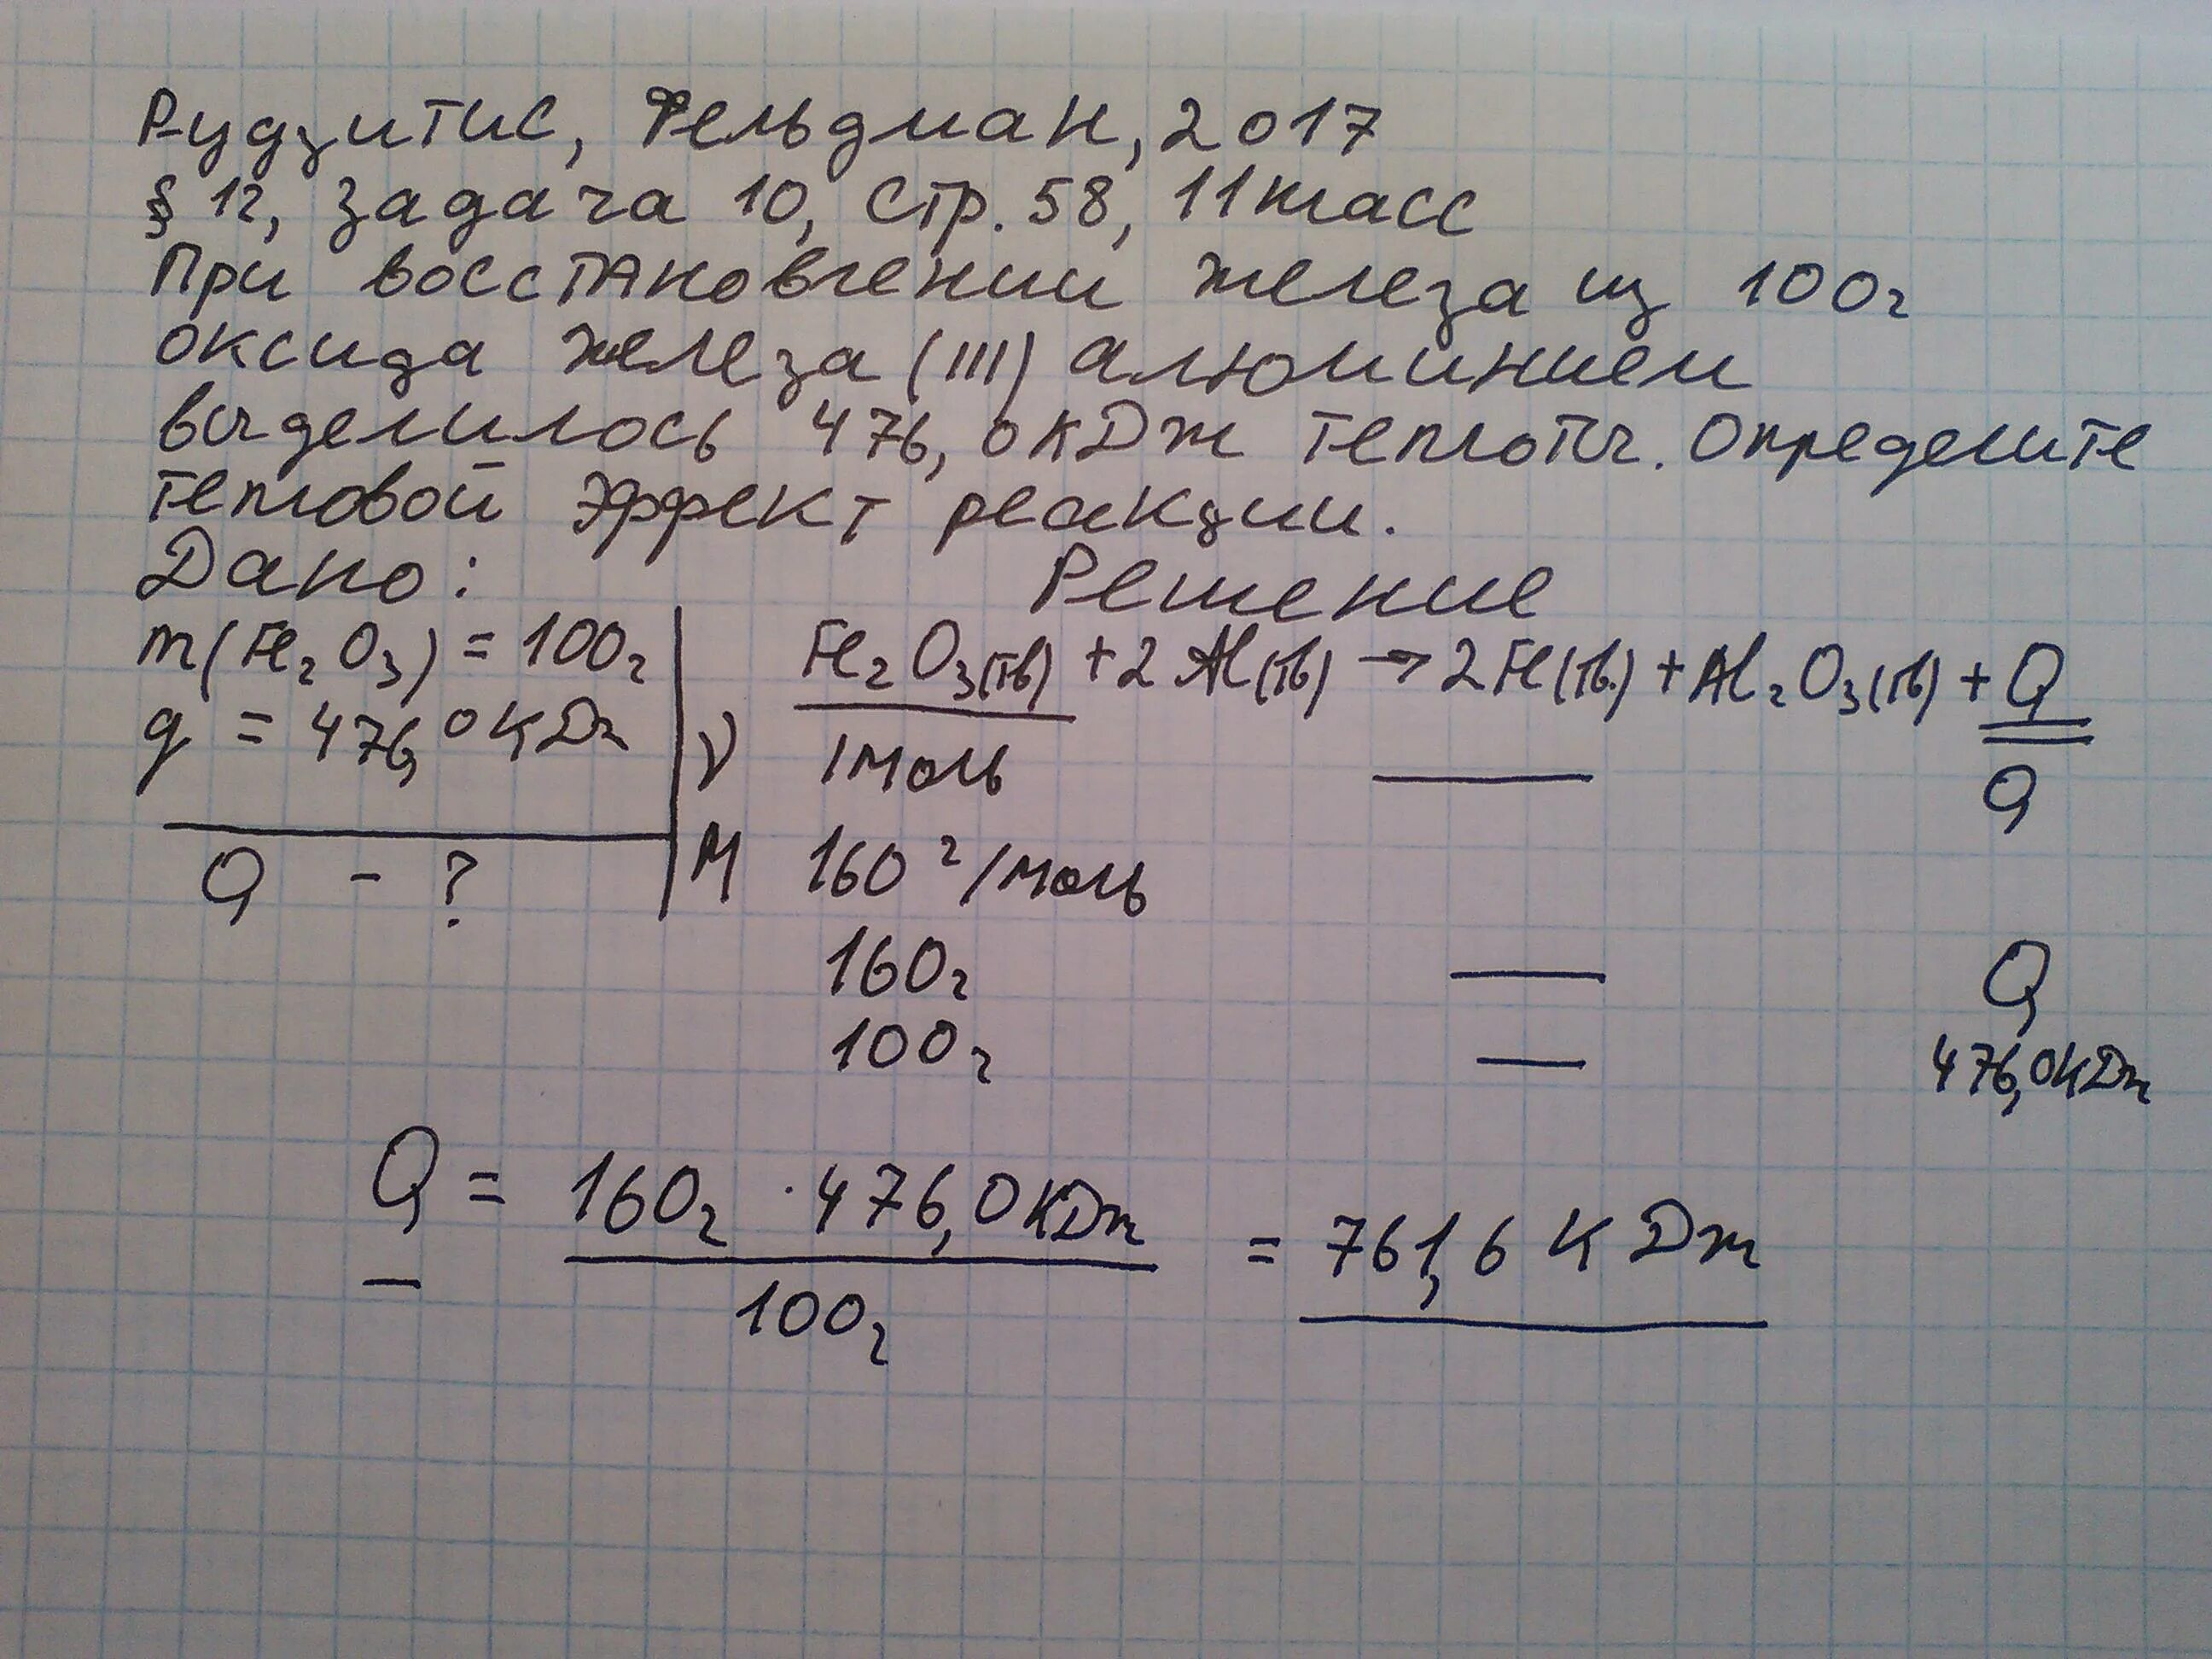 Рудзитис, Фельдман, 2017
§ 12, задача 10, стр. 58, 11 класс
При восстановлении железа из 100г
оксида железа (III) алюминием
выделилось 476,0 кДж теплоты. Определите
тепловой эффект реакции.
Дано: Решение
m(Fe₂O₃) = 100г Fe₂O₃(тв) + 2Al(тв) → 2Fe(тв.) + Al₂O₃(тв) + Q
q = 476,0 кДж ν 1моль — Q
Q - ? M 160 г/моль
160г — Q
100г — 476,0кДж
Q = 160г · 476,0кДж / 100г = 761,6 кДж